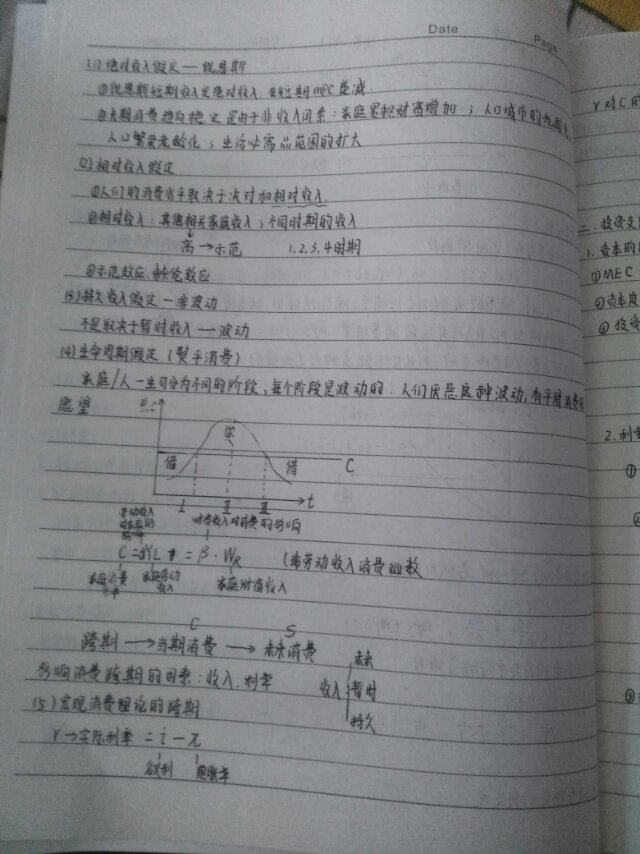 Date
Page
(1)绝对收入假定—凯恩斯
①凯恩斯短期收入是绝对收入,在短期MPC递减
②长期消费趋向稳定是由于非收入因素:家庭累积财富增加;人口城市的
人口繁荣老龄化;生活必需品范围的扩大
(2)相对收入假定
①人们的消费水平取决于决对和相对收入
②相对收入:其他相关家庭收入;不同时期的收入
高→示范 1,2,3,4时期
③示范效应,棘轮效应
(3)持久收入假定—非波动
不是取决于暂时收入—波动
(4)生命周期假定(熨平消费)
家庭/人一生可分为不同的阶段,每个阶段是波动的.人们厌恶这种波动,有平滑消费的
愿望
借 借 C
I II III t
劳动收入 财富收入对消费的影响
C=αYL = β·WR (清劳动收入消费函数
家庭消费 家庭劳动收入 家庭财富收入
C S
跨期→当期消费→未来消费
影响消费跨期的因素:收入,利率
收入 未来 暂时 持久
(5)宏观消费理论的跨期
r→实际利率=i-π
名义利 通胀率
Y对C的
二.投资
1.资本的
①MEC
②资本
③投资
2.利率
①